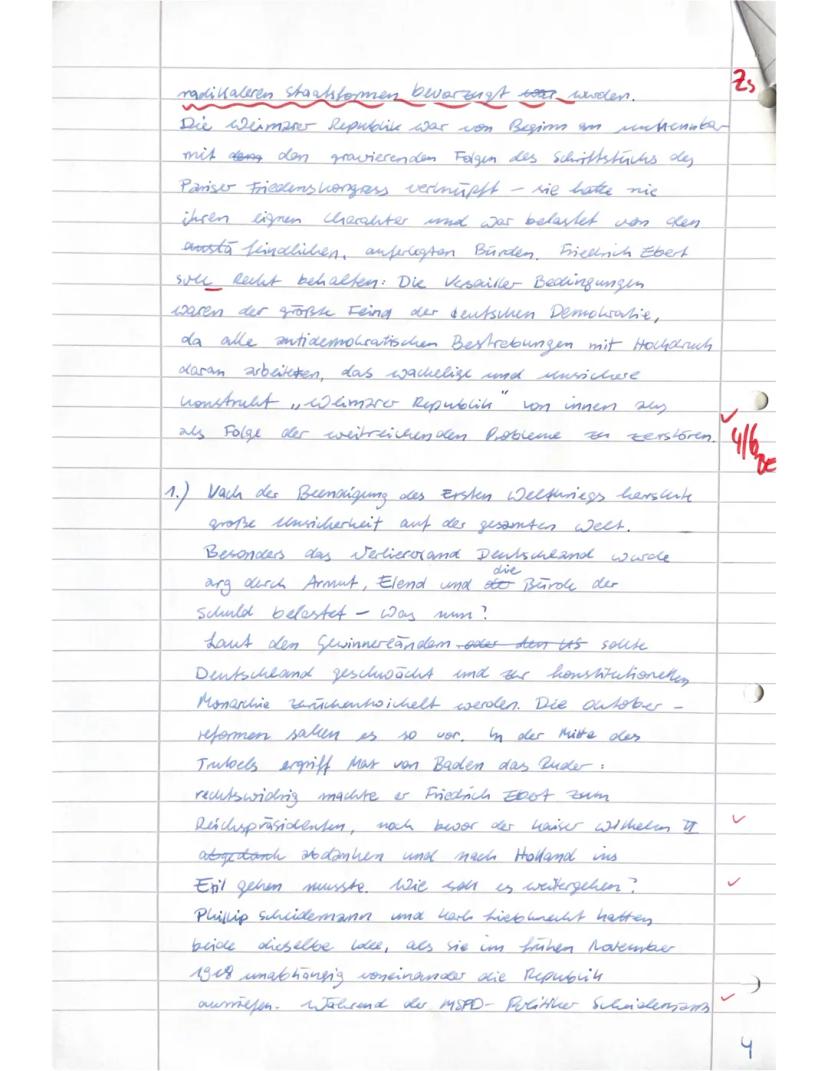 radikaleren Staatsformen bevorzugt war werden. Zs
Die Weimarer Republik war von Beginn an untrennbar
mit den gravierenden Folgen des Schriftstücks des
Pariser Friedenskongress verknüpft – sie hatte nie
ihren eignen Charakter und war belastet von den
feindlichen, auferlegten Bürden. Friedrich Ebert
soll Recht behalten: Die Versailler Bedingungen
waren der größte Feind der deutschen Demokratie,
da alle antidemokratischen Bestrebungen mit Hochdruck
daran arbeiteten, das wackelige und unsichere
Konstrukt „Weimarer Republik" von innen aus
als Folge der weitreichenden Probleme zu zerstören. ✓ 4/6 BE
1.) Nach der Beendigung des Ersten Weltkriegs herschte
große Unsicherheit auf der gesamten Welt.
Besonders das Verliererland Deutschland wurde
arg durch Armut, Elend und die Bürde der
Schuld belastet – Was nun?
Laut den Gewinnerländern oder den US sollte
Deutschland geschwächt und zur konstitutionellen
Monarchie zurückentwickelt werden. Die Oktober-
reformen sahen es so vor. In der Mitte des
Trubels ergriff Max von Baden das Ruder:
rechtswidrig machte er Friedrich Ebert zum
Reichspräsidenten, noch bevor der Kaiser Wilhelm II ✓
abgedank abdanken und nach Holland ins
Exil gehen musste. Wie soll es weitergehen? ✓
Phillip Scheidemann und Karl Liebknecht hatten
beide dieselbe Idee, als sie im frühen November
1918 unabhängig voneinander die Republik
ausriefen. Während der MSPD-Politiker Scheidemann ✓
4